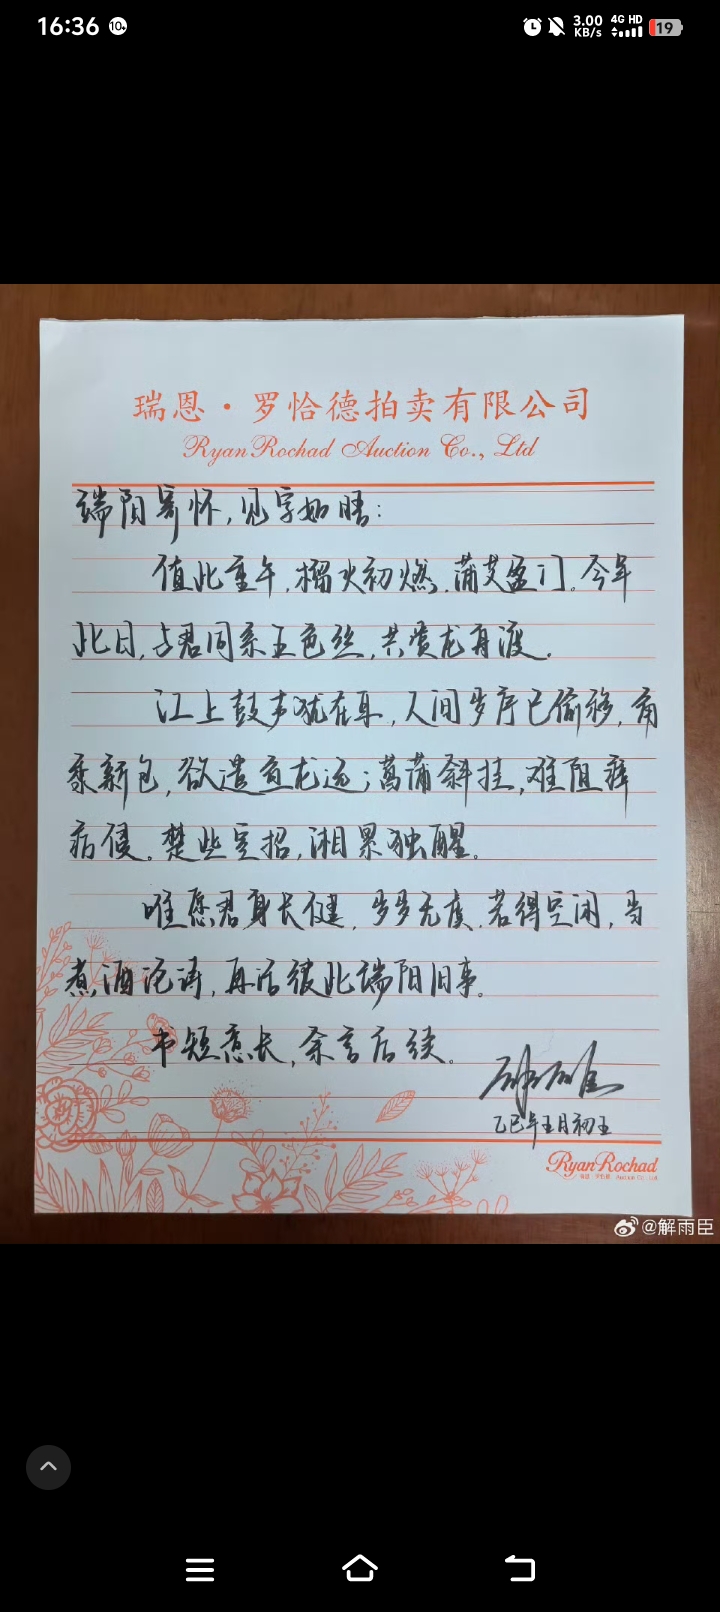 16:36
10+
3.00
KB/s
4G HD
19
瑞恩·罗恰德拍卖有限公司
Ryan Rochad Auction Co., Ltd
端阳寄怀,见字如晤:
值此重午,榴火初燃,蒲艾盈门。今年
此日,与君同系五色丝,共赏龙舟渡。
江上鼓声犹在耳,人间岁序已偷移,角
黍新包,欲遣鱼龙远;菖蒲斜挂,难阻
病侵。楚些空招,湘累独醒。
唯愿君身长健,岁岁无虞。若得空闲,当
煮酒沦涛,再话彼此端阳旧事。
书短意长,余言后续。
解雨臣
乙巳年五月初五
Ryan Rochad
@解雨臣